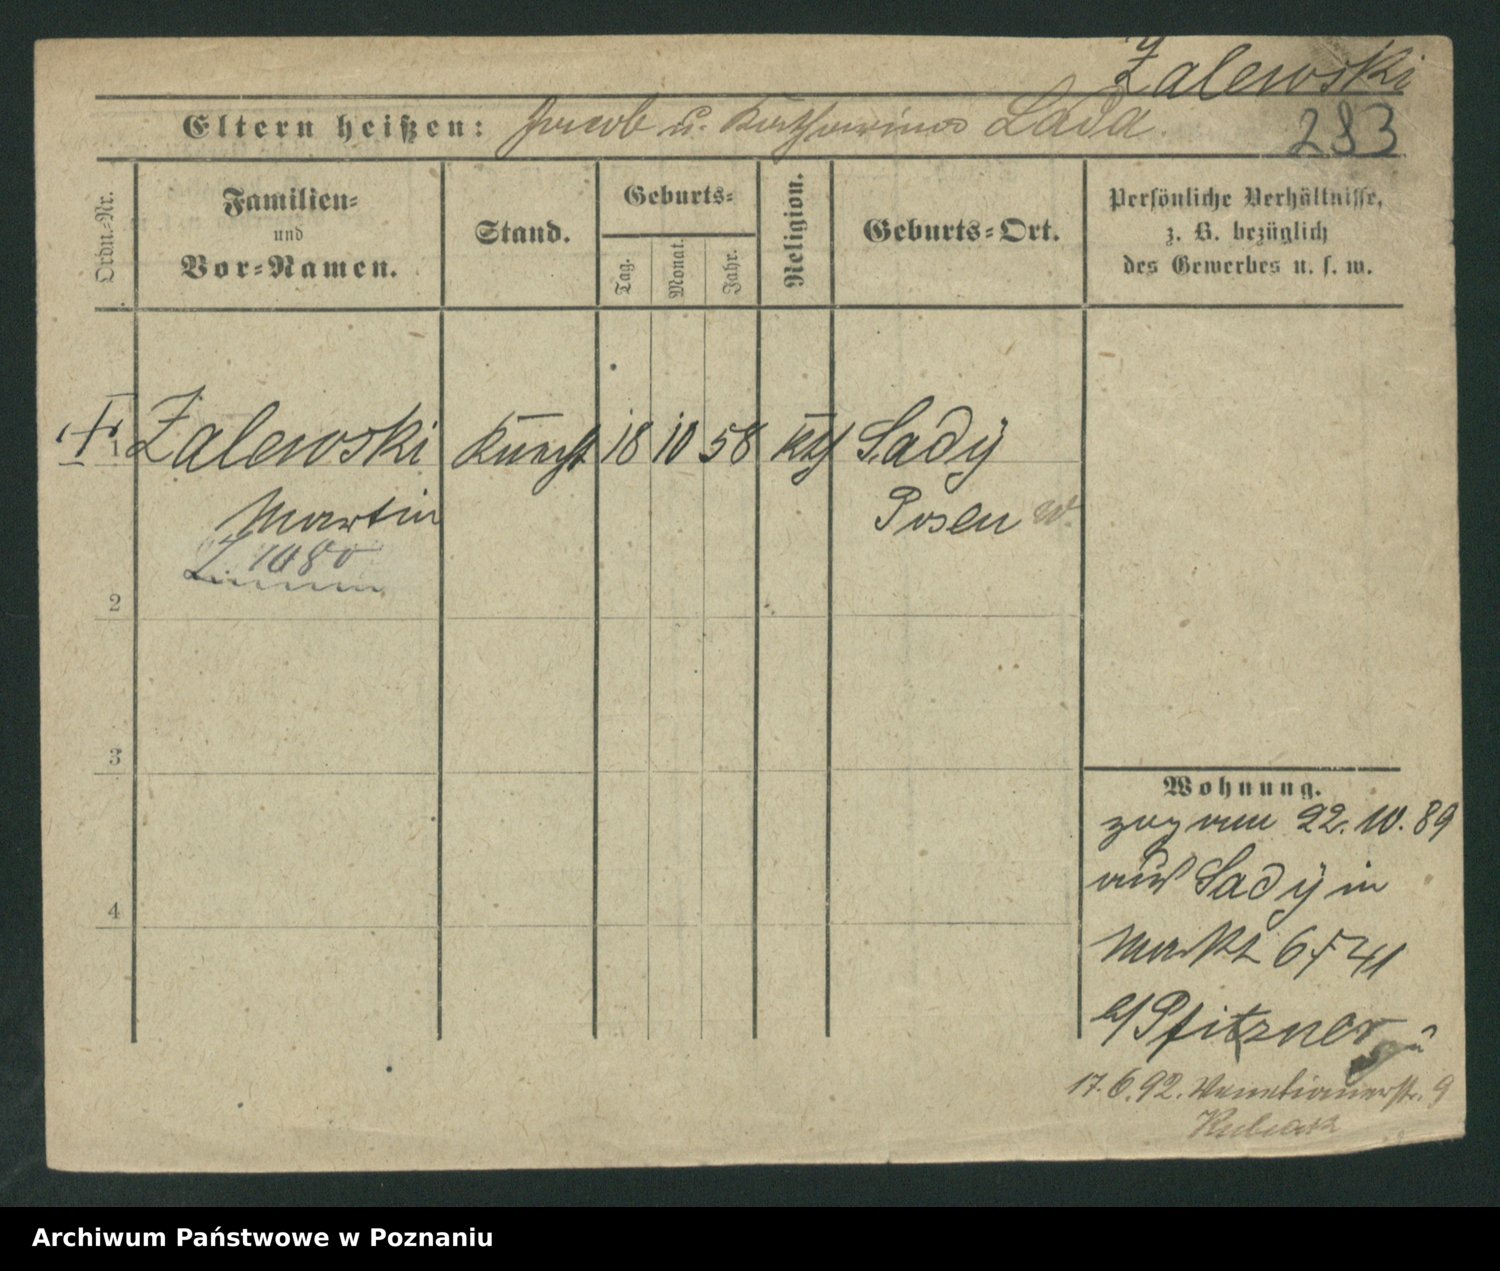 Zalewski
Eltern heißen: Jacob u. Katharina Lada.
283
Ordn.-Nr.
Familien-
und
Vor-Namen.
Stand.
Geburts-
Tag.
Monat.
Jahr.
Religion.
Geburts-Ort.
Persönliche Verhältnisse,
z. B. bezüglich
des Gewerbes u. s. w.
1 Zalewski Knecht 18 10 58 kth Sady
Martin Posen W.
1080
2
3
4
Wohnung.
zog am 22. 10. 89
aus Sady in
Markt 6541
b/ Pfitzner
17. 6. 92. Venetianerstr. 9
Kubiak
Archiwum Państwowe w Poznaniu